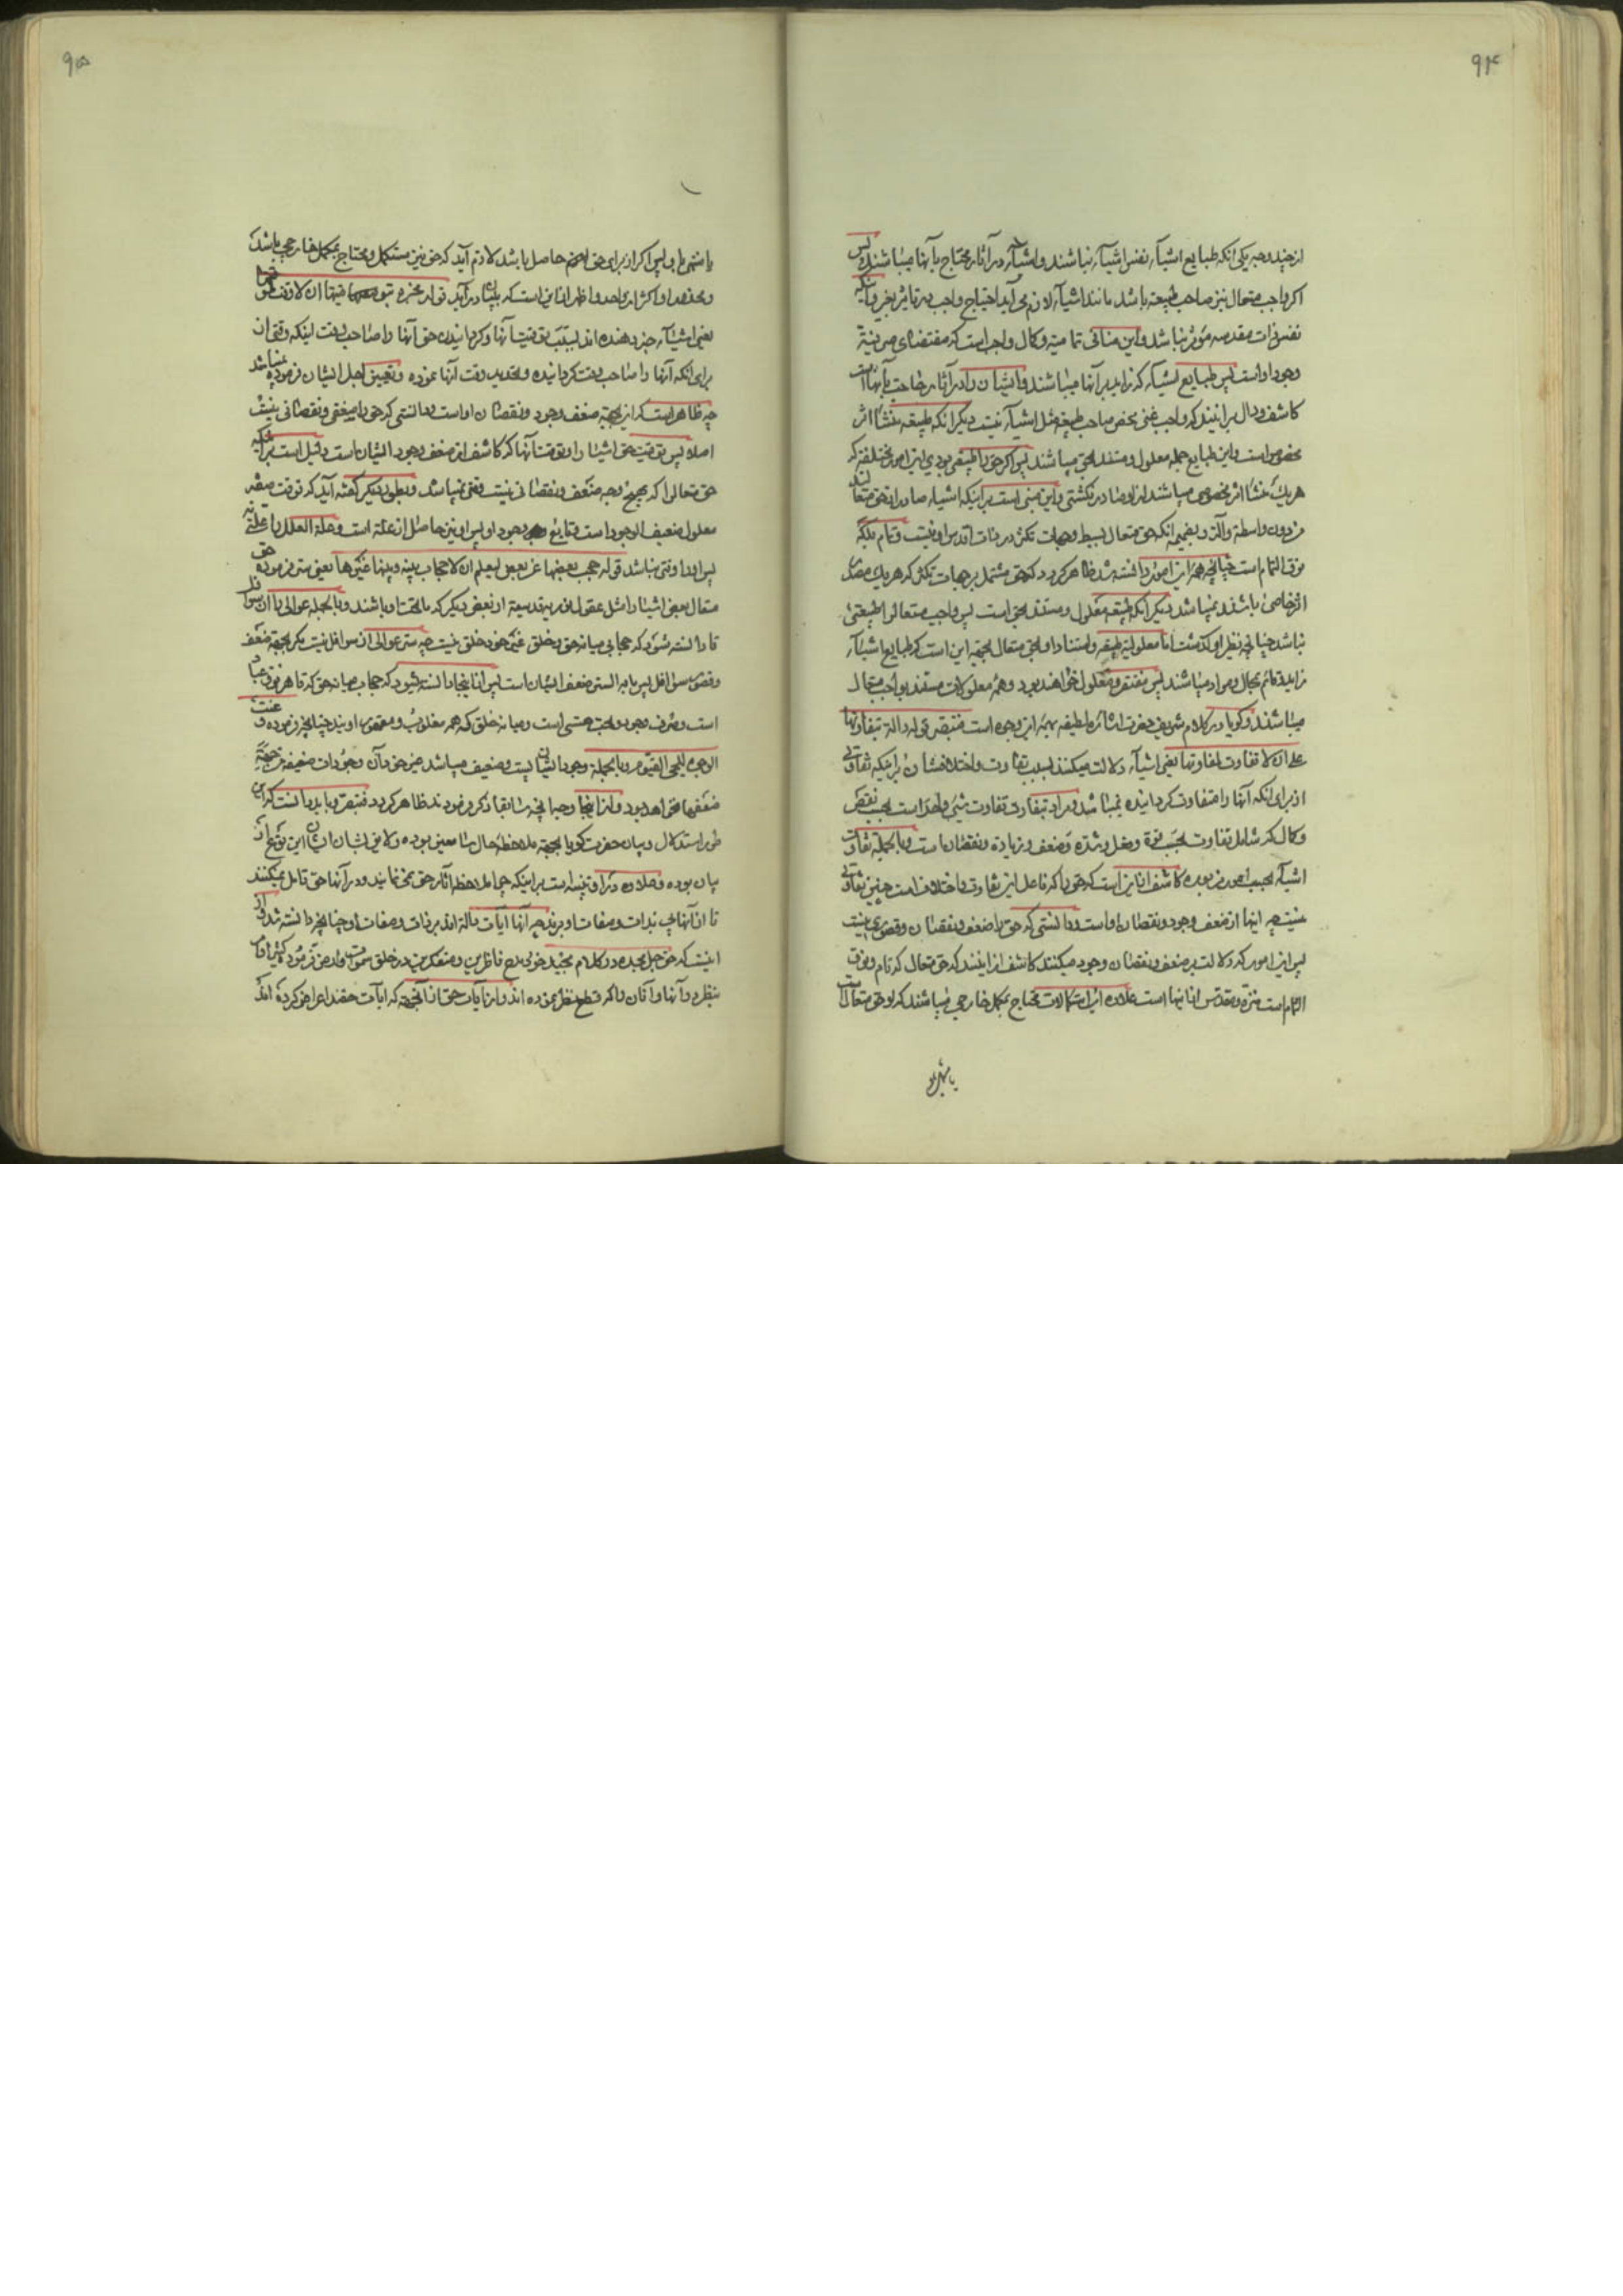 ۹۴
از چند وجه یکی آنکه طبایع اشیآء نفس اشیآء نباشند و اشیآء در آثار محتاج بآنها میباشند پس
اگر واجب متعال نیز صاحب طبیعة باشد مانند اشیآء لازم می آید احتیاج واجب در تاثیر بغیر و آنکه
نفس ذات مقدسه مؤثر نباشد و این منافی تمامیة و کمال واجب است که مقتضای صرفیة
وجود اواست پس طبایع اشیآء که زاید بر آنها میباشند و ایشان را در آثار حاجت بآنها است
کاشف و دال بر اینند که واجب غنی محض صاحب طبیعة مثل اشیآء نیست دیگر آنکه طبیعه منشأ اثر
مخصوص است و این طبایع جمله معلول و مستند بحق میباشند پس اگر حق را طبیعتی بودی این امور مختلفه که
هریک منشأ اثر مخصوصی میباشند از او صادر نگشتی و این مبنی است بر اینکه اشیاء صادر از حق متعالند
من دون واسطه و آلة و بضمیمه آنکه حق متعال بسیط و جهات تکثر در ذات اقدس او نیست و تام بلکه
فوق التمام است چنانچه همه این امور دانسته شد ظاهر گردد که حق مشتمل بر جهات تکثر که هریک مصدر
اثر خاصی باشند نمیباشد دیگر آنکه طبیعه معلول و مستند بحق است پس واجب متعال را طبیعتی
نباشد چنانچه نظیر او گذشت اما معلولیة طبیعه و استناد او بحق متعال بجهة این است که طبایع اشیآء
زایده قائم بمحال و مواد میباشند پس مفتقر و معلول خواهند بود و همه معلولات مستند بواجب متعال
میباشند و گویا در کلام شریف حضرت اشاره لطیفه بهمه این وجوه است فتبصر قوله دالة بتفاوتها
علی ان لا تفاوت لمفاوتها یعنی اشیآء دلالت میکنند بسبب تفاوت و اختلافشان بر اینکه تفاوتی
از برای آنکه آنها را متفاوت گردانیده نمیباشد و مراد بتفاوت تفاوت شیئی واحد است بحسب نقص
و کمال که شامل تفاوت بحسب قوة و فعل و شدة و ضعف و زیادة و نقصان است و بالجملة تفاوت
اشیآء بحسب امور مزبوره کاشف از این است که حق را که فاعل این تفاوت و اختلاف است چنین تفاوتی
نیست چه اینها از ضعف وجود و نقصان اواست و دانستی که حق را ضعف و نقصان و قصوری نیست
پس این امور که دلالت بر ضعف و نقصان وجود میکنند کاشف از اینند که حق متعال که تام و فوق
التمام است منزه و مقدس از اینها است علاوه این استکمالات محتاج بمکمل خارجی میباشند که او حق متعال است
یا منتهی باو
۹۵
یا منتهی باو پس اگر از برای حق اینهم حاصل باشد لازم آید که حق نیز مستکمل و محتاج بمکمل خارجی باشد
یعنی اشیآء خبر دهنده اند بسبب توقیت آنها و گردانیدن حق آنها را صاحب وقت اینکه وقتی از
برای آنکه آنها را صاحب وقت گردانیده و تحدید وقت آنها نموده و تعیین اجل ایشان فرموده نمیباشد
چه ظاهر است که این بجهة ضعف وجود و نقصان اواست و دانستی که حق را ضعفی و نقصانی نیست
اصلا پس توقیت حق اشیا را و توقت آنها که کاشف از ضعف وجود ایشان است دلیل است بر آنکه
حق متعال را که بهیچ وجه ضعف و نقصانی نیست وقتی نمیباشد و بطور دیگر گفته آید که توقت صفة
معلول ضعیف الوجود است و تابع وجود او پس او نیز حاصل از علة است و علة العلل را علة نه
پس او را وقتی نباشد قوله حجب بعضها عن بعض لیعلم ان لا حجاب بینه و بینها غیرها یعنی ستر فرموده حق
متعال بعض اشیا را مثل عقول نوریه قدسیه از بعض دیگر که ماتحت او باشند و بالجمله عوالی را از سوافل
تا دانسته شود که حجابی میانه حق و خلق غیر خود خلق نیست چه ستر عوالی از سوافل نیست مگر بجهة ضعف
و قصور سوافل پس ساتر ایشان ضعف ایشان است پس از اینجا دانسته شود که حجاب میانه حق که قاهر فوق عباد
است و صرف وجود و بحت هستی است و میانه خلق که همه مغلوب و مقهور اویند چنانچه فرموده و عنت
الوجوه للحی القیوم و بالجملة وجود ایشان پست و ضعیف میباشد
ضعفها نخواهد بود و از اینجا وجه آنچه سابقا ذکر فرمودند ظاهر گردد فتبصر و باید دانست که این
طور استدلال و بیان حضرت گویا بجهة ملاحظه حال سامعین بوده و لایق بشان ایشان این نوع از
بیان بوده و علاوه در او تنبیه است بر اینکه چرا ملاحظه آثار حق نمینمایند و در آنها حق تامل نمیکنند
تا از آنها پی بذات و صفات او برند چه آنها آیات دالة اند بر ذات و صفات او چنانچه دانسته شد و از
اینست که حق جل مجده در کلام مجید خود مدح ناظرین و متفکرین در خلق سموات و ارض فرموده کثیرا و امر
بنظر در آنها و آنان را که قطع نظر نموده اند و از آیات حق از آنجهة که آیات حقند اعراض کرده اند